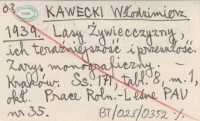 03 KAWECKI Włodzimierz
1939. Lasy Żywiecczyzny,
ich teraźniejszość i przeszłość.
Zarys monograficzny. -
Kraków. Ss. 171, tabl. 8, m. 1,
okł. Prace Roln.-Leśne PAU
nr. 35. BT/025/0352